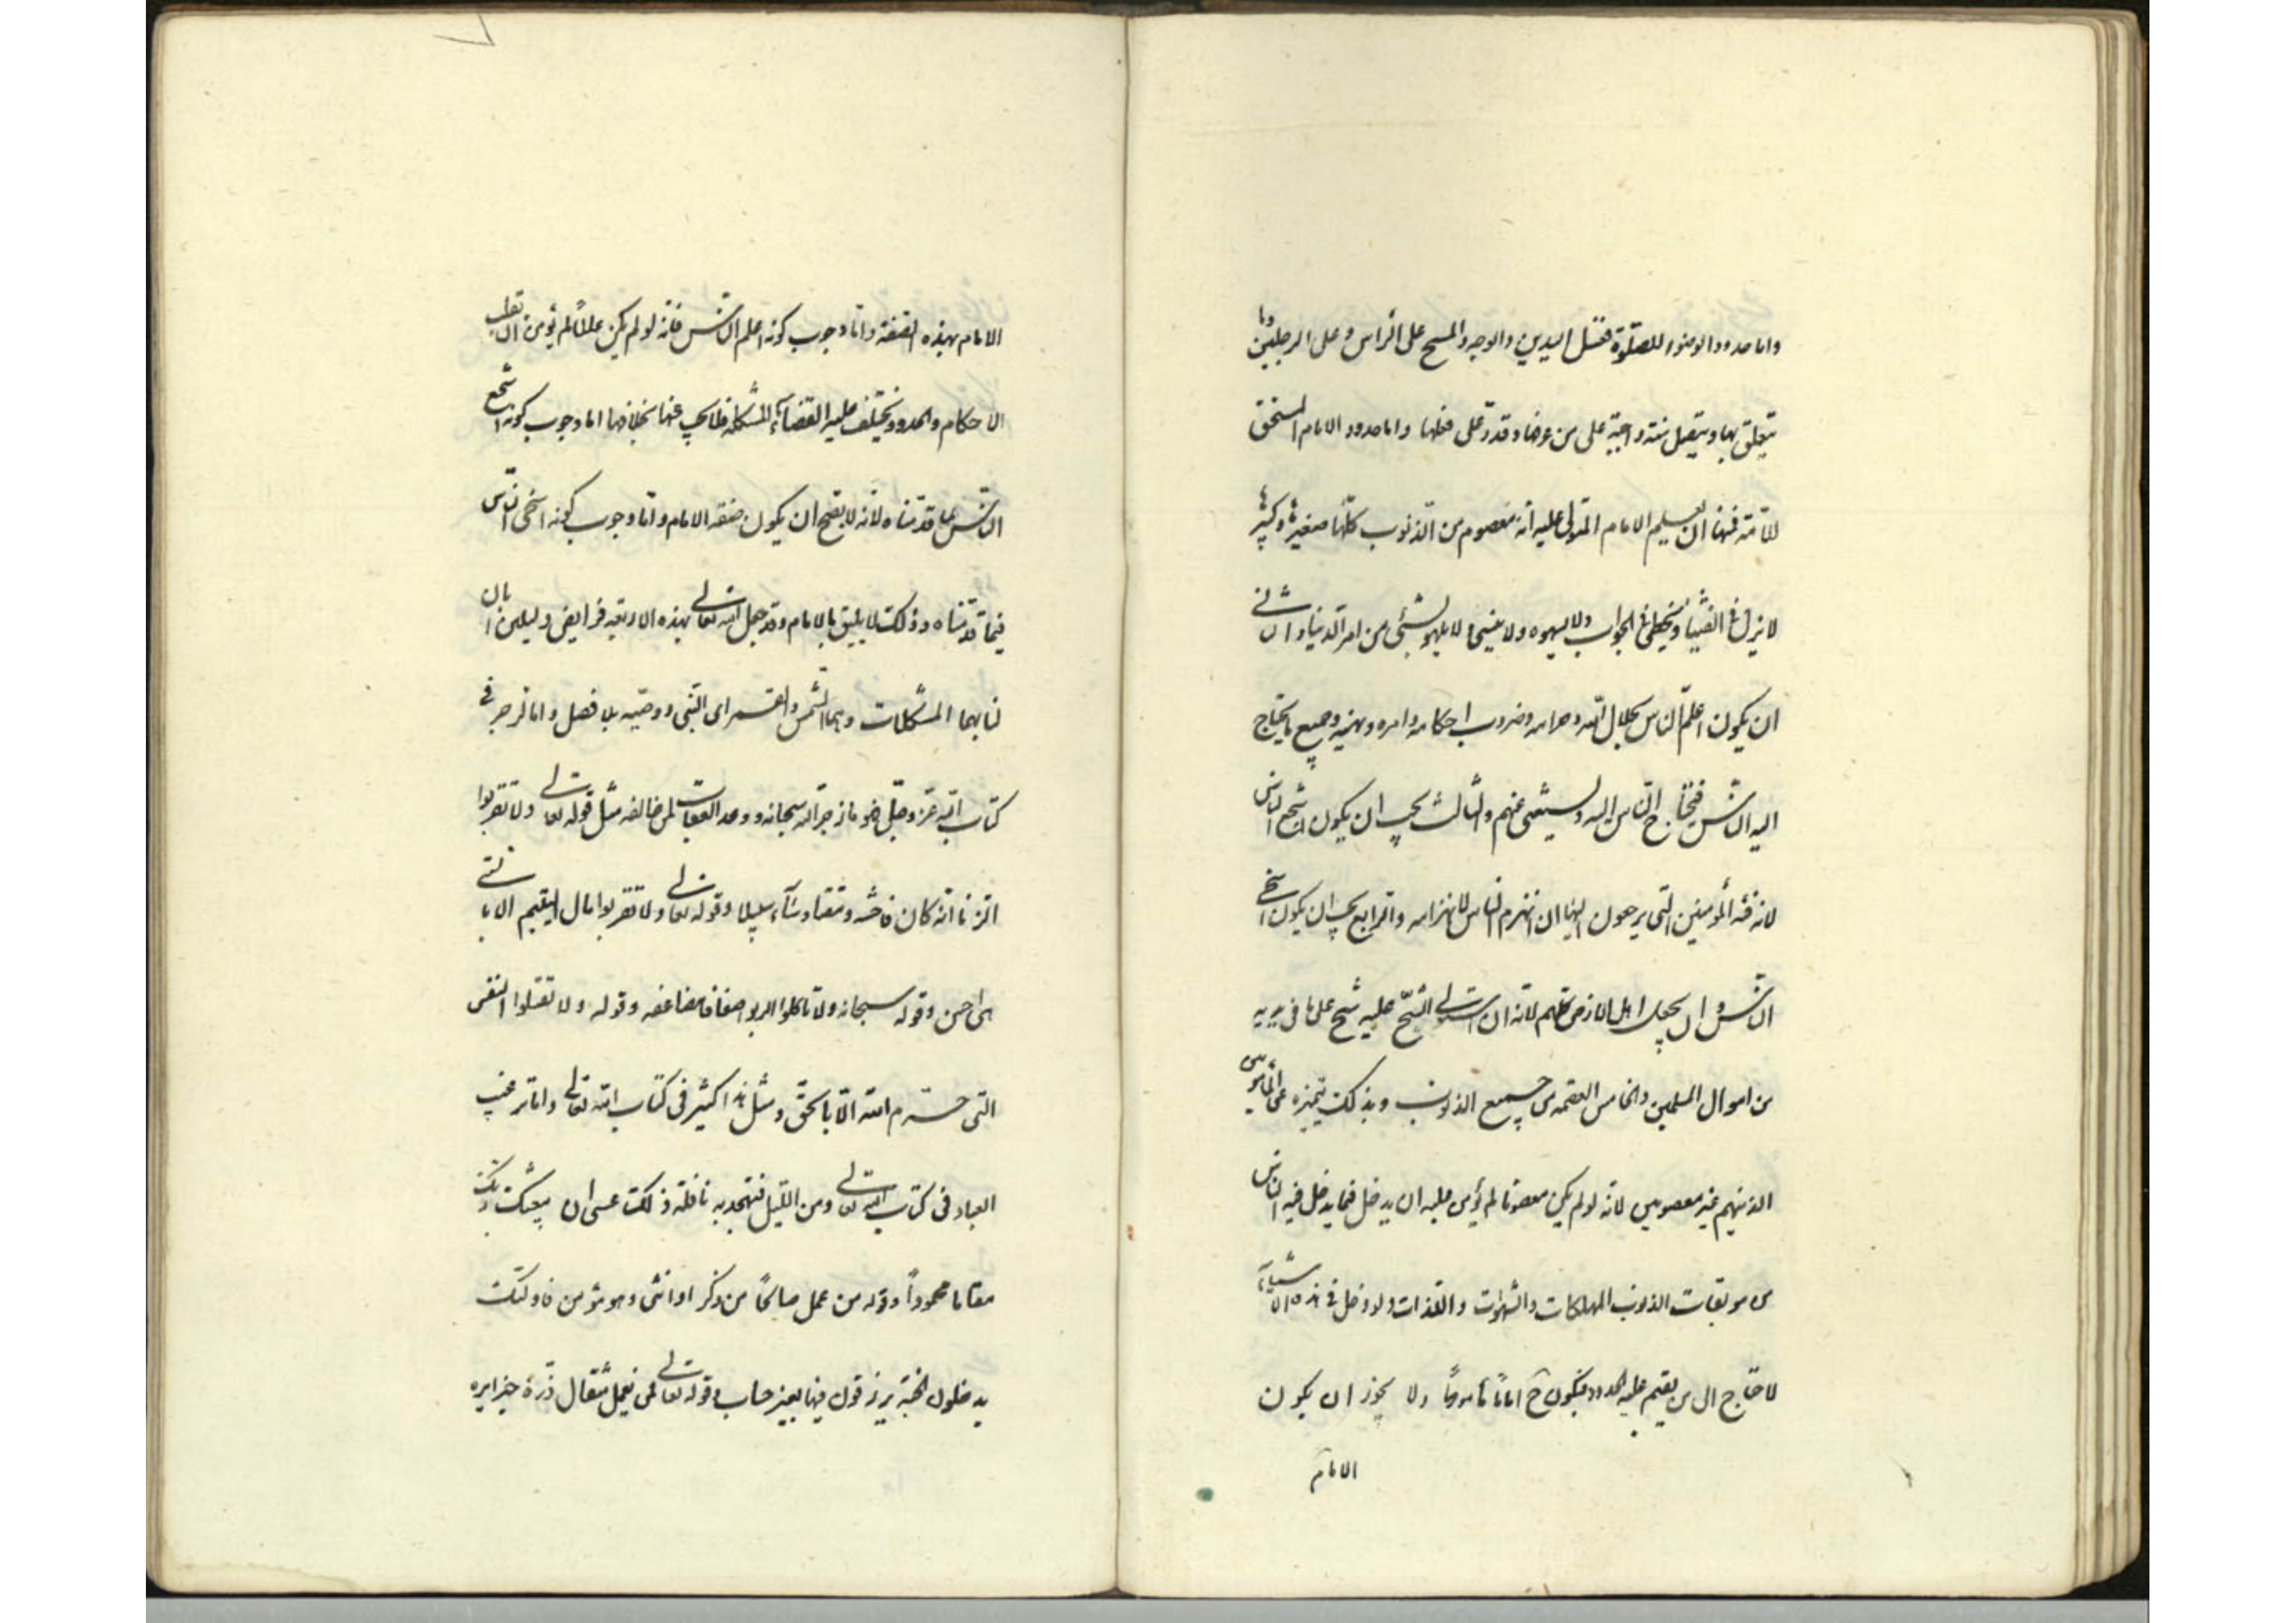 واما حدود الوضوء للصلوة فغسل اليدين والوجه والمسح على الراس وعلى الرجلين وما
يتعلق بها ويتصل سنة واجبة على من عرفها وقدر على فعلها واما حدود الامام المستحق
للامامة فمنها ان يعلم الامام المتولى عليه انه معصوم من الذنوب كلها صغيرها وكبيرها
لا يزل في الفتيا ولا يخطى في الجواب ولا يسهو ولا ينسى ولا يلهو بشئ من امر الدنيا والثانى
ان يكون اعلم الناس بحلال الله وحرامه وضروب احكامه وامره ونهيه وجميع ما يحتاج
اليه الناس فيحتاج الناس اليه ويستغنى عنهم والثالث يجب ان يكون اشجع الناس
لانه فئة المؤمنين التى يرجعون اليها ان انهزم الناس لانهزامه والرابع يجب ان يكون اسخى
الناس وان بخل اهل الارض كلهم لانه ان استولى الشح عليه شح على ما فى يديه
من اموال المسلمين والخامس العصمة من جميع الذنوب وبذلك يتميز عن المأمومين
الذينهم غير معصومين لانه لو لم يكن معصوما لم يؤمن عليه ان يدخل فيما يدخل فيه الناس
من موبقات الذنوب المهلكات والشهوات واللذات ولو دخل فى هذه الاشياء
لاحتاج الى من يقيم عليه الحدود فيكون ح اماما مأموما ولا يجوز ان يكون
الامام
الامام بهذه الصفة واما وجوب كونه اعلم الناس فانه لو لم يكن عالما لم يؤمن ان يقلب
الاحكام والحدود ويختلف عليه القضاء المشكلة فلا يجيب عنها بخلافها اما وجوب كونه اشجع
الناس بما قدمناه لانه لا يصح ان يكون صفة الامام واما وجوب كونه اسخى الناس
فيما قدمناه وذلك لا يليق بالامام وقد جعل الله تعالى بهذه الاربعة فرايض دليلين ابان
لنا بهما المشكلات وهما الشمس والقمر اى النبى ووصيه بلا فصل واما الزجر فى
كتاب الله عز وجل فهو ما زجر الله سبحانه ووعد العقاب لمن خالفه مثل قوله تعالى ولا تقربوا
الزنا انه كان فاحشه ومقتا وساء سبيلا وقوله تعالى ولا تقربوا مال اليتيم الا بالتى
هى احسن وقوله سبحانه ولا تاكلوا الربوا اضعافا مضاعفه وقوله ولا تقتلوا النفس
التى حرم الله الا بالحق ومثل هذا كثير فى كتاب الله تعالى واما ترغيب
العباد فى كتاب الله تعالى ومن الليل فتهجد به نافلة لك عسى ان يبعثك ربك
مقاما محمودا وقوله من عمل صالحا من ذكر او انثى وهو مؤمن فاولئك
يدخلون الجنة يرزقون فيها بغير حساب وقوله تعالى فمن يعمل مثقال ذرة خيرا يره